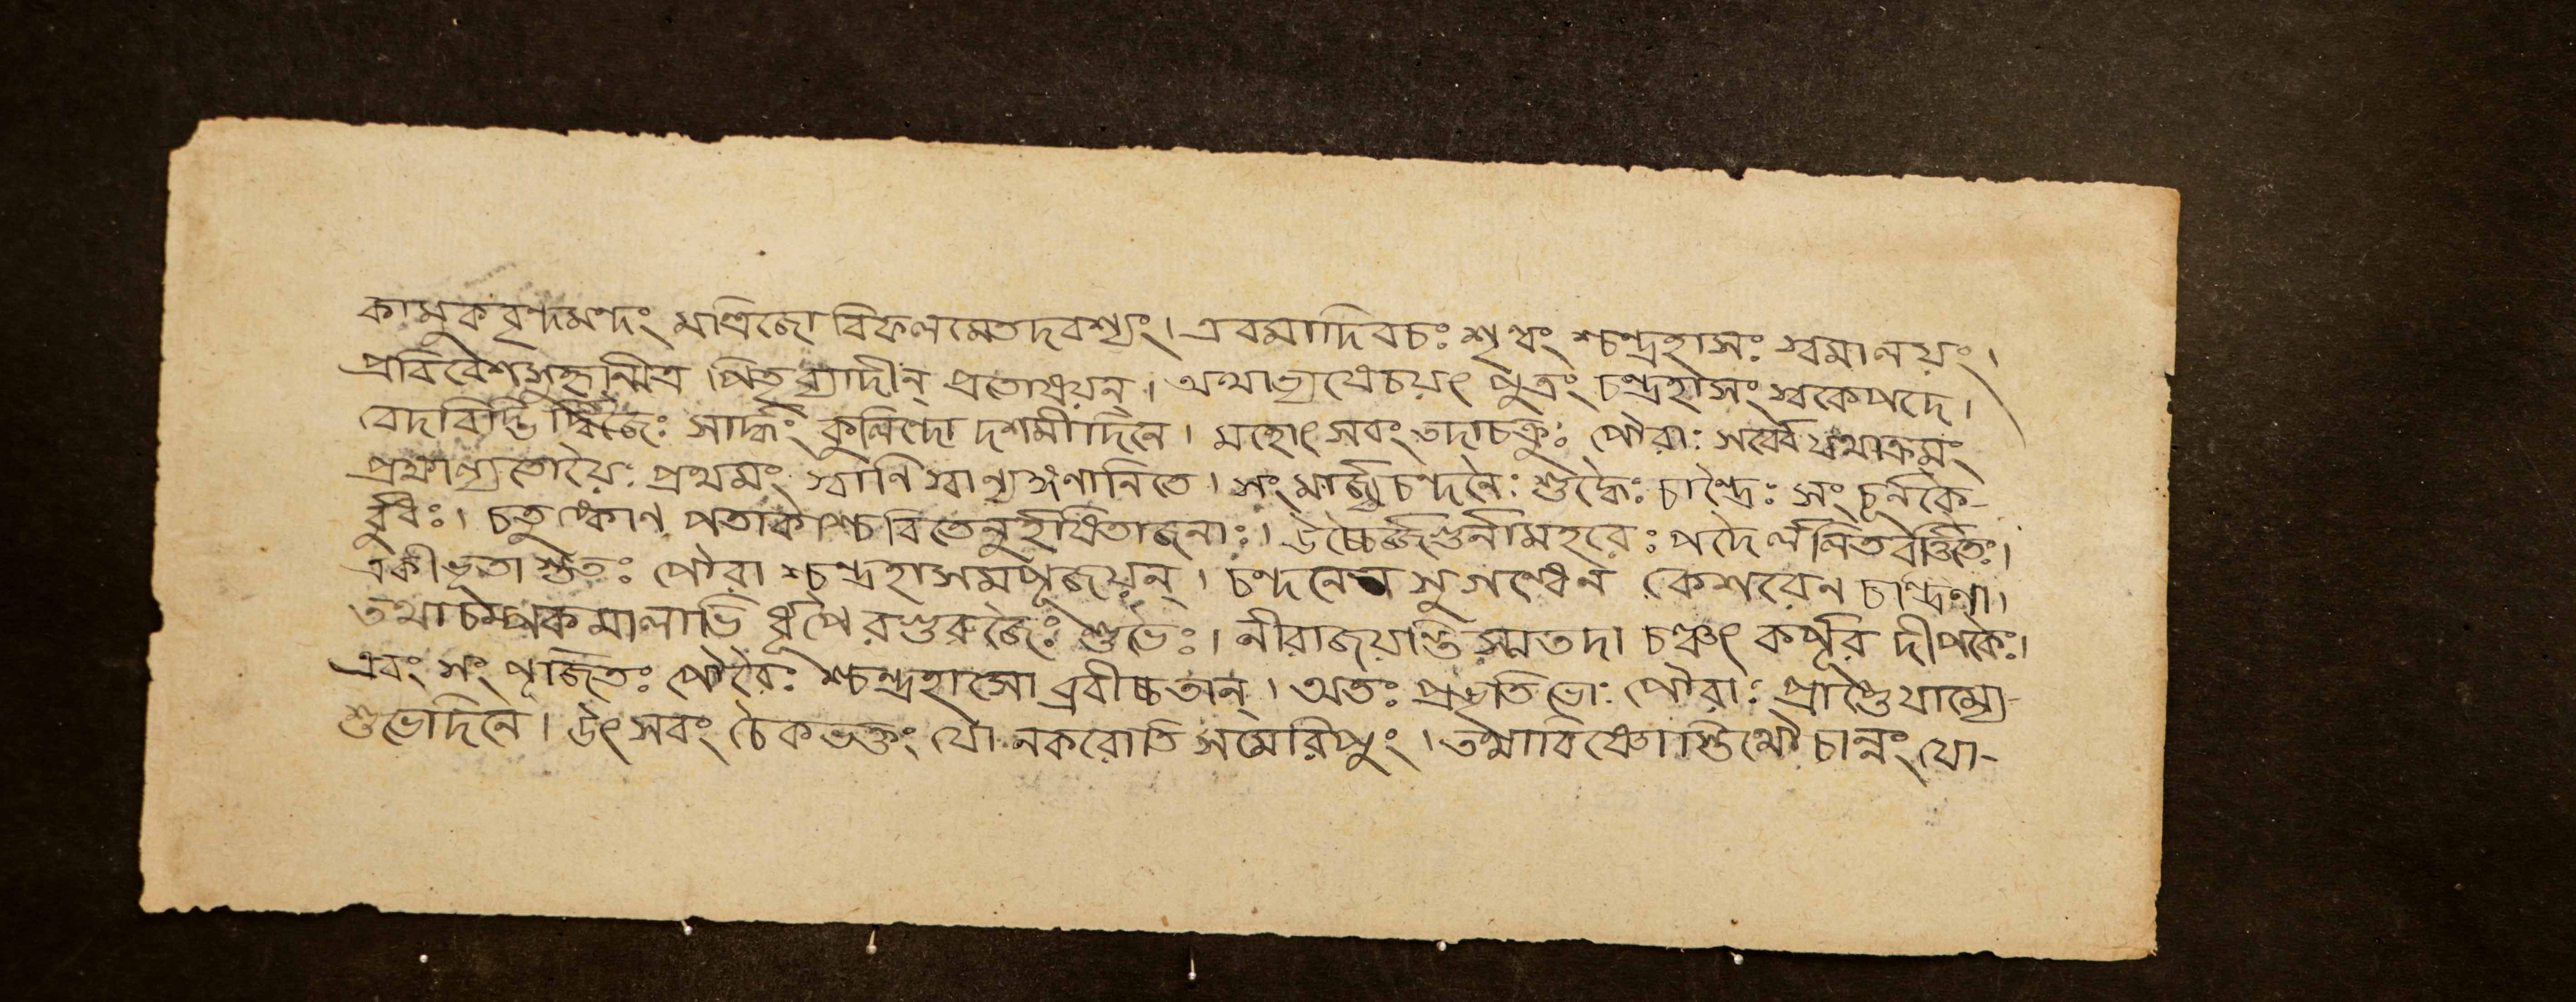 কামুকবৃন্দমন্দং মাত্রিজো বিফলমেতদবশ্যং। এবমাদিবচঃ শৃণ্বং শ্চন্দ্রহাসঃ স্বমালয়ং।
প্রবিবেশসুহৃন্মিত্র পিতৃব্যাদীন্ প্রতোষয়ন্। অথাভ্যষেচয়ৎ পুত্রং চন্দ্রহাসং স্বকেপদে।
বেদবিদ্ভি র্দ্বিজৈঃ সার্দ্ধং কুলিন্দো দশমীদিনে। মহোৎসবং তদাচক্রুঃ পৌরাঃ সর্ব্বে যথাক্রমং
প্রক্ষাল্যতোয়ৈঃ প্রথমং স্বানি স্বান্যঙ্গণানিতে। সংমার্জ্যচন্দনৈঃ শুদ্ধৈঃ চান্দ্রৈঃ সংচূর্নকৈ-
র্বুধঃ। চতুষ্কোণ পতাকাশ্চ বিতেনুর্হর্ষিতাজনাঃ। উচ্চৈর্জ্জগুর্নামহরেঃ পদৈর্ললিতবর্ত্তিতৈঃ।
একীভূতাস্ততঃ পৌরা শ্চন্দ্রহাসমপূজয়ন্। চন্দনেন সুগন্ধেন কেশরেন চন্দ্রিণা।
তথাচম্পকমালাভি র্ধূপৈরগুরুজৈঃ শুভৈঃ। নীরাজয়ন্তিস্মতদা চঞ্চৎ কর্পূর দীপকৈঃ।
এবং সংপূজিতঃ পৌরৈঃ শ্চন্দ্রহাসো ব্রবীচ্চতান্। অতঃ প্রভৃতি ভোঃ পৌরাঃ প্রাপ্তৈ যাম্যে-
শুভোদিনে। উৎসবং চৈকভক্তং যো নকরোতি সমেরিপুং। তথাবিষ্ণোস্তিথৌ চান্নং যো-